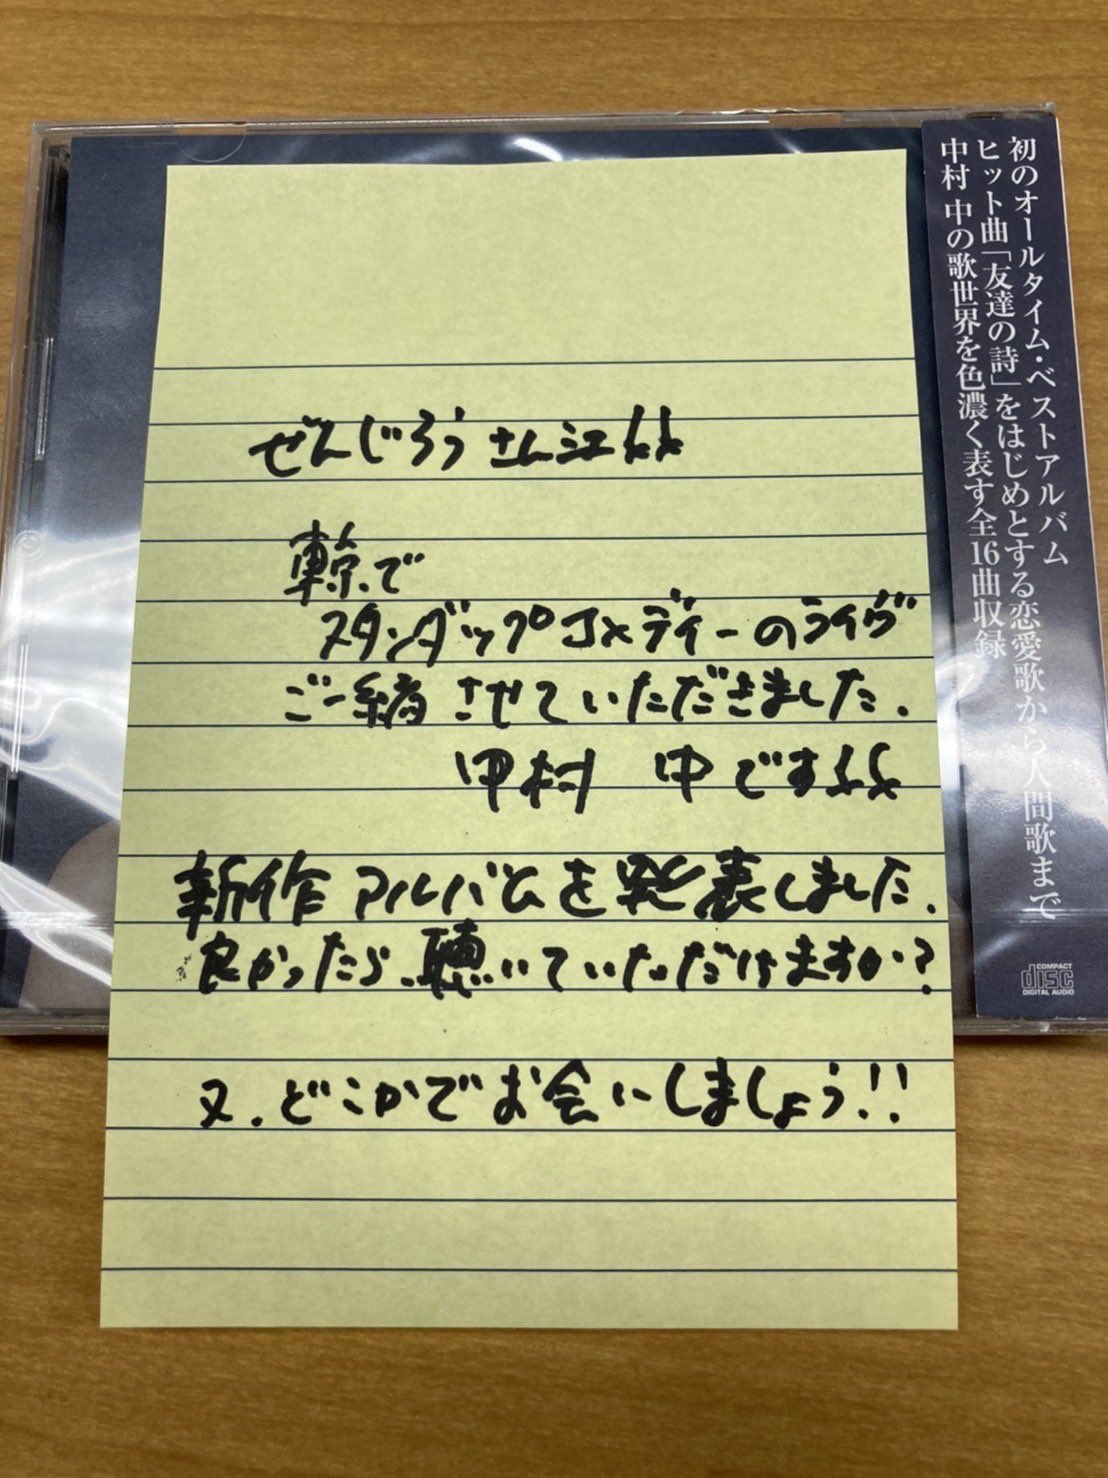 ぜんじろうさん江☆☆
東京で
スタンダップコメディーのライヴ
ご一緒させていただきました.
中村 中です☆☆
新作アルバムを発表しました.
良かったら.聴いていただけますか?
又.どこかでお会いしましょう!!
初のオールタイム・ベストアルバム
ヒット曲「友達の詩」をはじめとする恋愛歌から人間歌まで
中村 中の歌世界を色濃く表す全16曲収録
COMPACT
disc
DIGITAL AUDIO